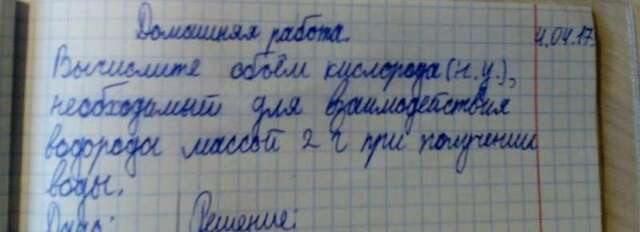 Домашняя работа. 4.04.17
Вычислите объём кислорода (н.у.),
необходимый для взаимодействия
водорода массой 2 г при получении
воды.
Дано: Решение: